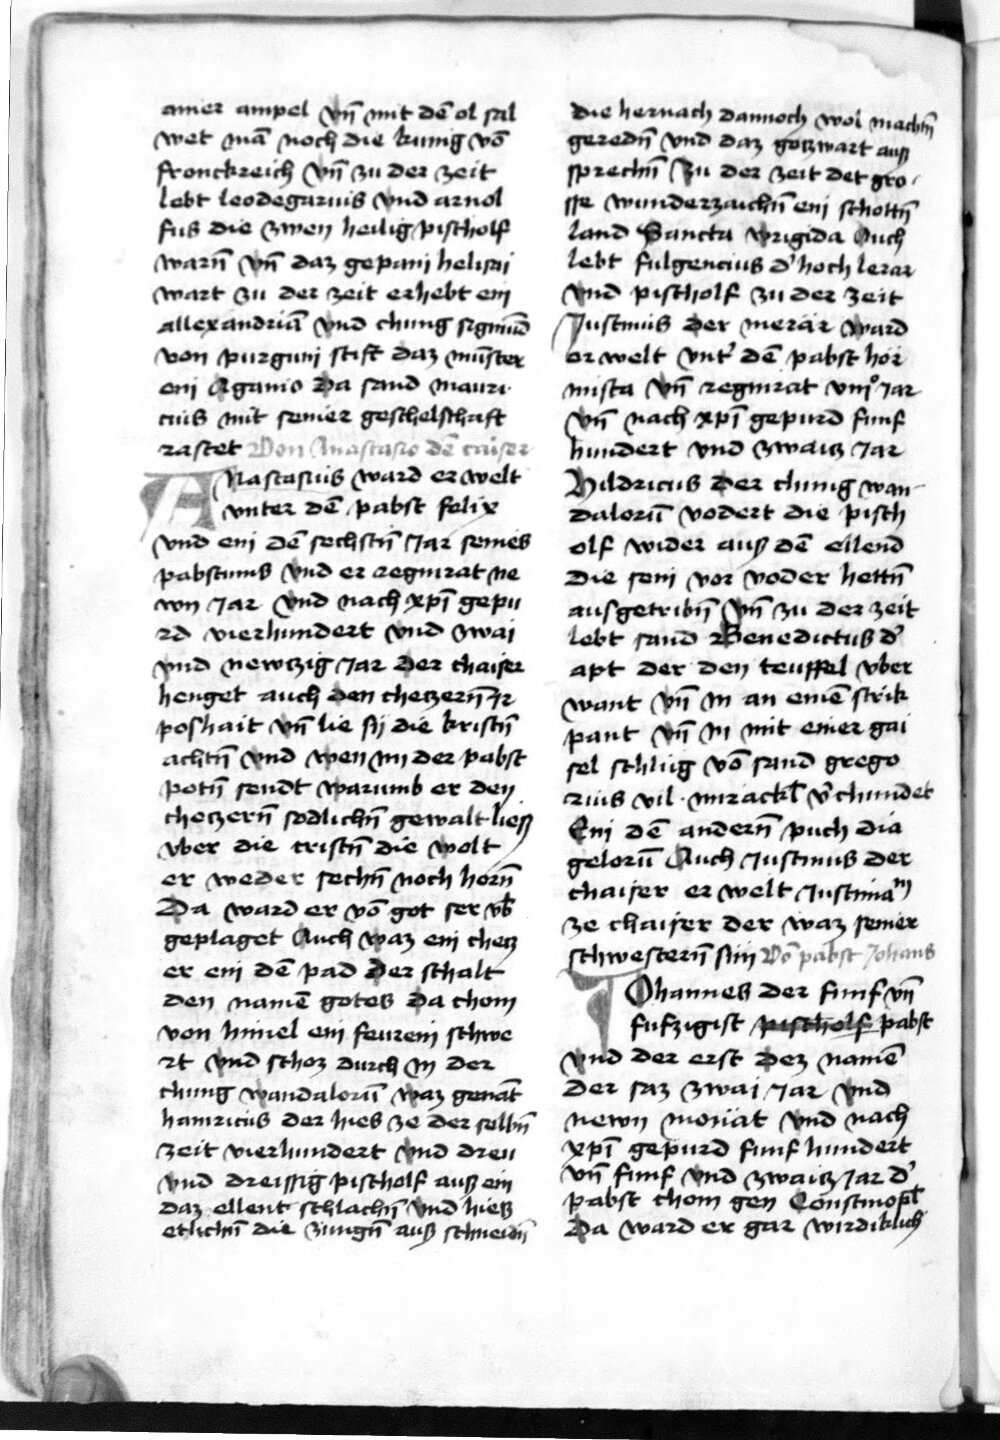 ainer ampel vn̄ mit dē ol sal
wet mā noch die kunig vō
Fronckreich vn̄ zu der zeit
lebt leodegarius vnd arnol
fus die zwen heilig pischolf
warn̄ vn̄ daz gepain helisei
wart zu der zeit erhebt ein
allexandriā vnd chung sigmūd
von purguni stift daz mūster
ein Aganio Da sand mauri
cius mit seiner geschelschaft
rastet Von Anastasio dē caiser
ANastasius ward er welt
vnter dē pabst felix
vnd ein dē sechstn̄ Jar seines
pabstums vnd er regnirat ne
wn Jar vnd nach xp̄i gepu
rd vierhundert vnd zwai
vnd newtzig Jar Der chaiser
henget auch den chetzern̄ ir
poshait vn̄ lie sÿ die kristn̄
achtn̄ vnd wen im der pabst
potn̄ sendt warumb er den
chetzern̄ sodlichn̄ gewalt liess
vber die cristn̄ die wolt
er weder sechn̄ noch horn̄
Da ward er vō got ser vb̄
geplaget Auch waz ein chetz
er ein dē pad Der schalt
den namē gotes Da chom
von himel ein feurein schwe
rt vnd schoz durch in der
chung wandalorū waz genāt
hainricus der hies ze der selbn̄
zeit vierhundert vnd dreu
vnd dreissig pischolf auss ein
daz ellent schlachn̄ vnd hiess
etlichn̄ die zungn̄ auss schneidn̄
die hernach dannoch wol machn̄
geredn̄ vnd daz gotzwart auss
sprechn̄ Zu der zeit det gro
sse wunderzaichn̄ ein schottn̄
land Sancta vrigida Auch
lebt fulgencius d' hoch lerar
vnd pischolf zu der zeit
Justinus der merär ward
er welt vnt' dē pabst hor
mista vn̄ regnirat viiijº Jar
vn̄ nach xp̄i gepurd funf
hundert vnd zwaitz Jar
Hildricus der chunig wan
dalorū vodert die pisch
olf wider auss dē ellend
die sein vor voder hettn̄
ausgetribn̄ vn̄ zu der zeit
lebt sand Benedictus d'
apt der den teuffel vber
want vn̄ in an einē strik
pant vn̄ in mit einer gai
sel schlug vō sand grego
rius vil mirackl̄ v'chundet
Ein dē andern̄ puch dia
gelorū Auch Justinus der
chaiser er welt Justinianm
ze chaiser der waz seiner
schwestern̄ sun Vō pabst Johans
JOhannes der funf vn̄
fufzigist pischolf pabst
vnd der erst dez namē
der saz zwai Jar vnd
newn monät vnd nach
xp̄i gepurd funf hundert
vn̄ funf vnd zwaitz Jar d'
pabst chom gen Constinopl̄
Da ward er gar wirdiklich